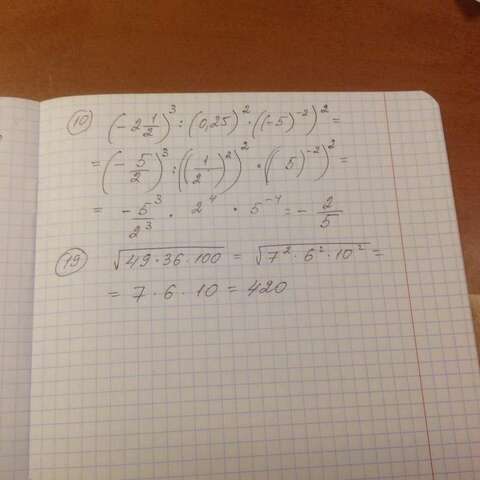 10 (-2 1/2)³ : (0,25)² · ((-5)⁻²)² =
= (-5/2)³ : ((1/2)²)² · ((5)⁻²)² =
= -5³/2³ · 2⁴ · 5⁻⁴ = -2/5
19 √(49·36·100) = √(7²·6²·10²) =
= 7·6·10 = 420